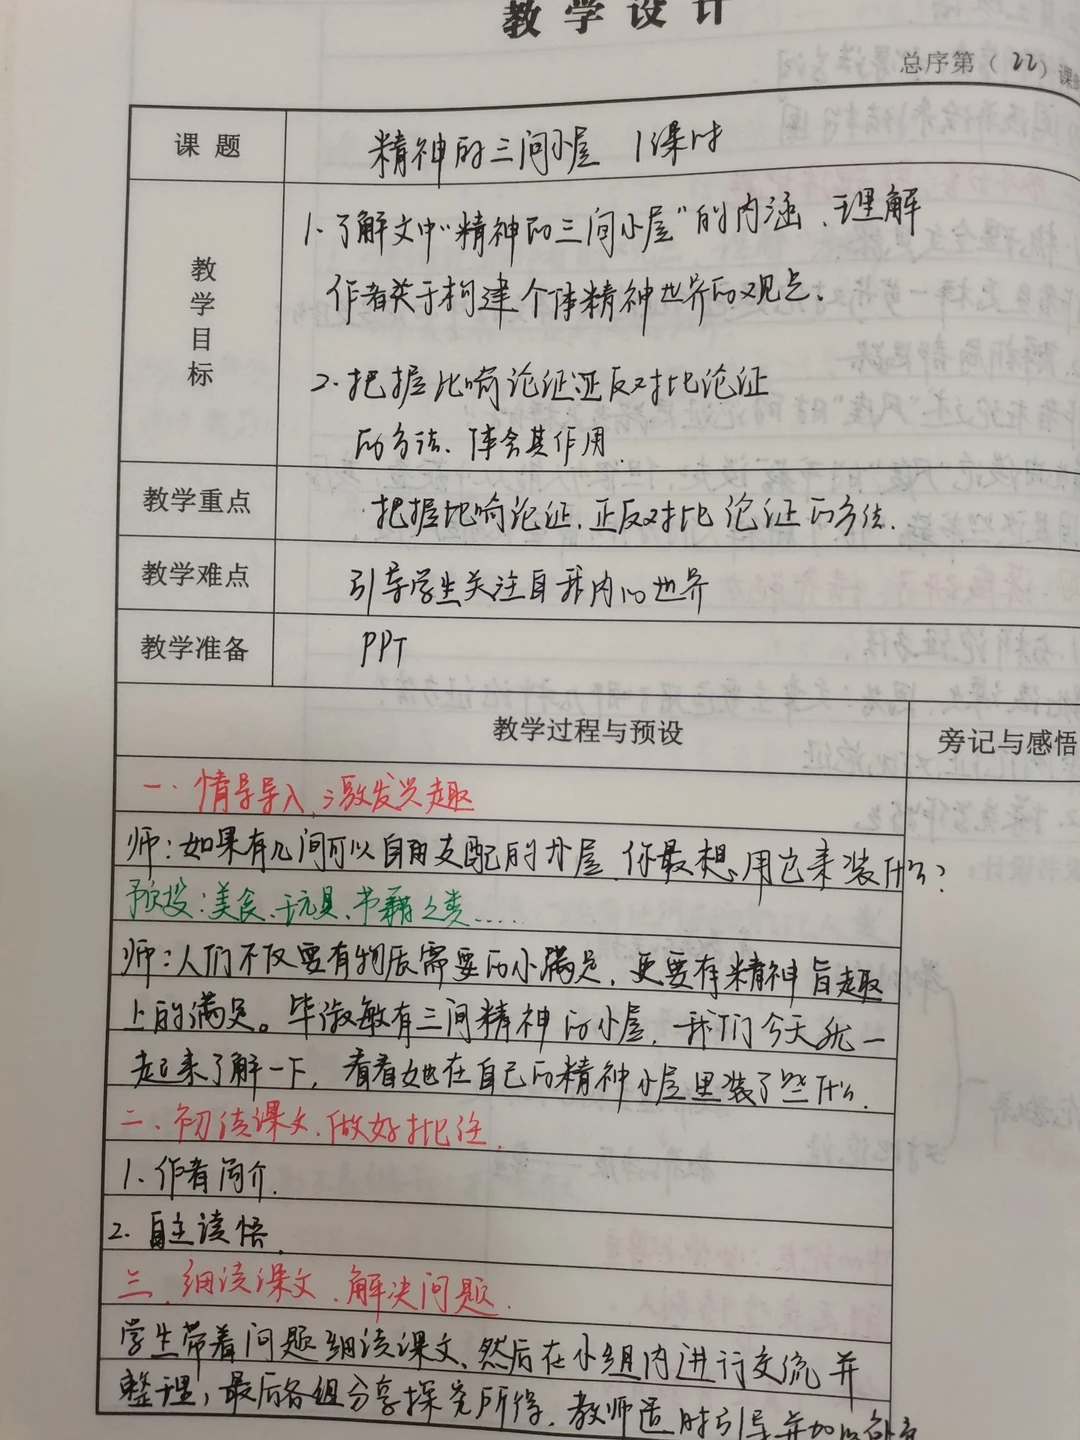 教学设计
总序第（22）课
课题 精神的三间小屋 1课时
教学目标
1.了解文中“精神的三间小屋”的内涵、理解
作者关于构建个体精神世界的观点.
2.把握比喻论证正反对比论证
的方法、体会其作用.
教学重点 把握比喻论证.正反对比论证的方法.
教学难点 引导学生关注自我内心世界
教学准备 PPT
教学过程与预设 旁记与感悟
一.情导导入,激发兴趣
师:如果有几间可以自由支配的小屋.你最想用它来装什么?
预设:美食、玩具、书籍之类......
师:人们不仅要有物质需要的小满足,更要有精神旨趣
上的满足。毕淑敏有三间精神的小屋,我们今天就一
起来了解一下,看看她在自己的精神小屋里装了些什么.
二.初读课文.做好批注.
1.作者简介.
2.自主读悟.
三.细读课文.解决问题.
学生带着问题细读课文,然后在小组内进行交流并
整理,最后各组分享探究所得.教师适时引导并加以补充